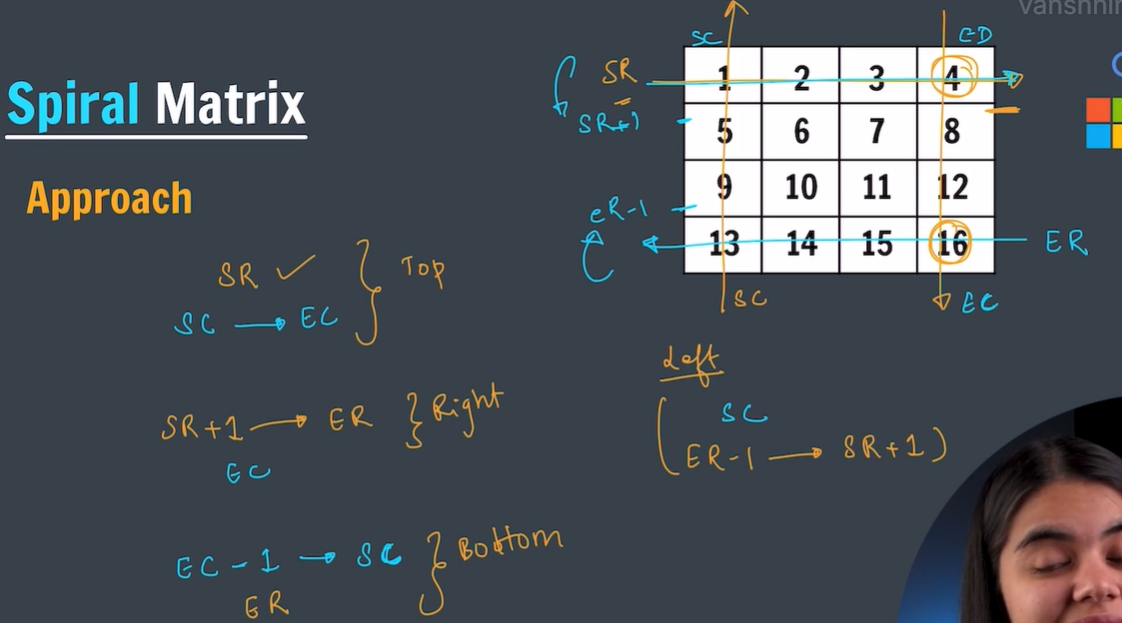 Spiral Matrix
Approach
SR ✓ } Top
SC → EC
SR+1 → ER } Right
EC
EC-1 → SC } Bottom
ER
SC
SR
SR+1
eR-1
1 2 3 4
5 6 7 8
9 10 11 12
13 14 15 16
ER
SC
EC
Left
SC
(ER-1 → SR+1)